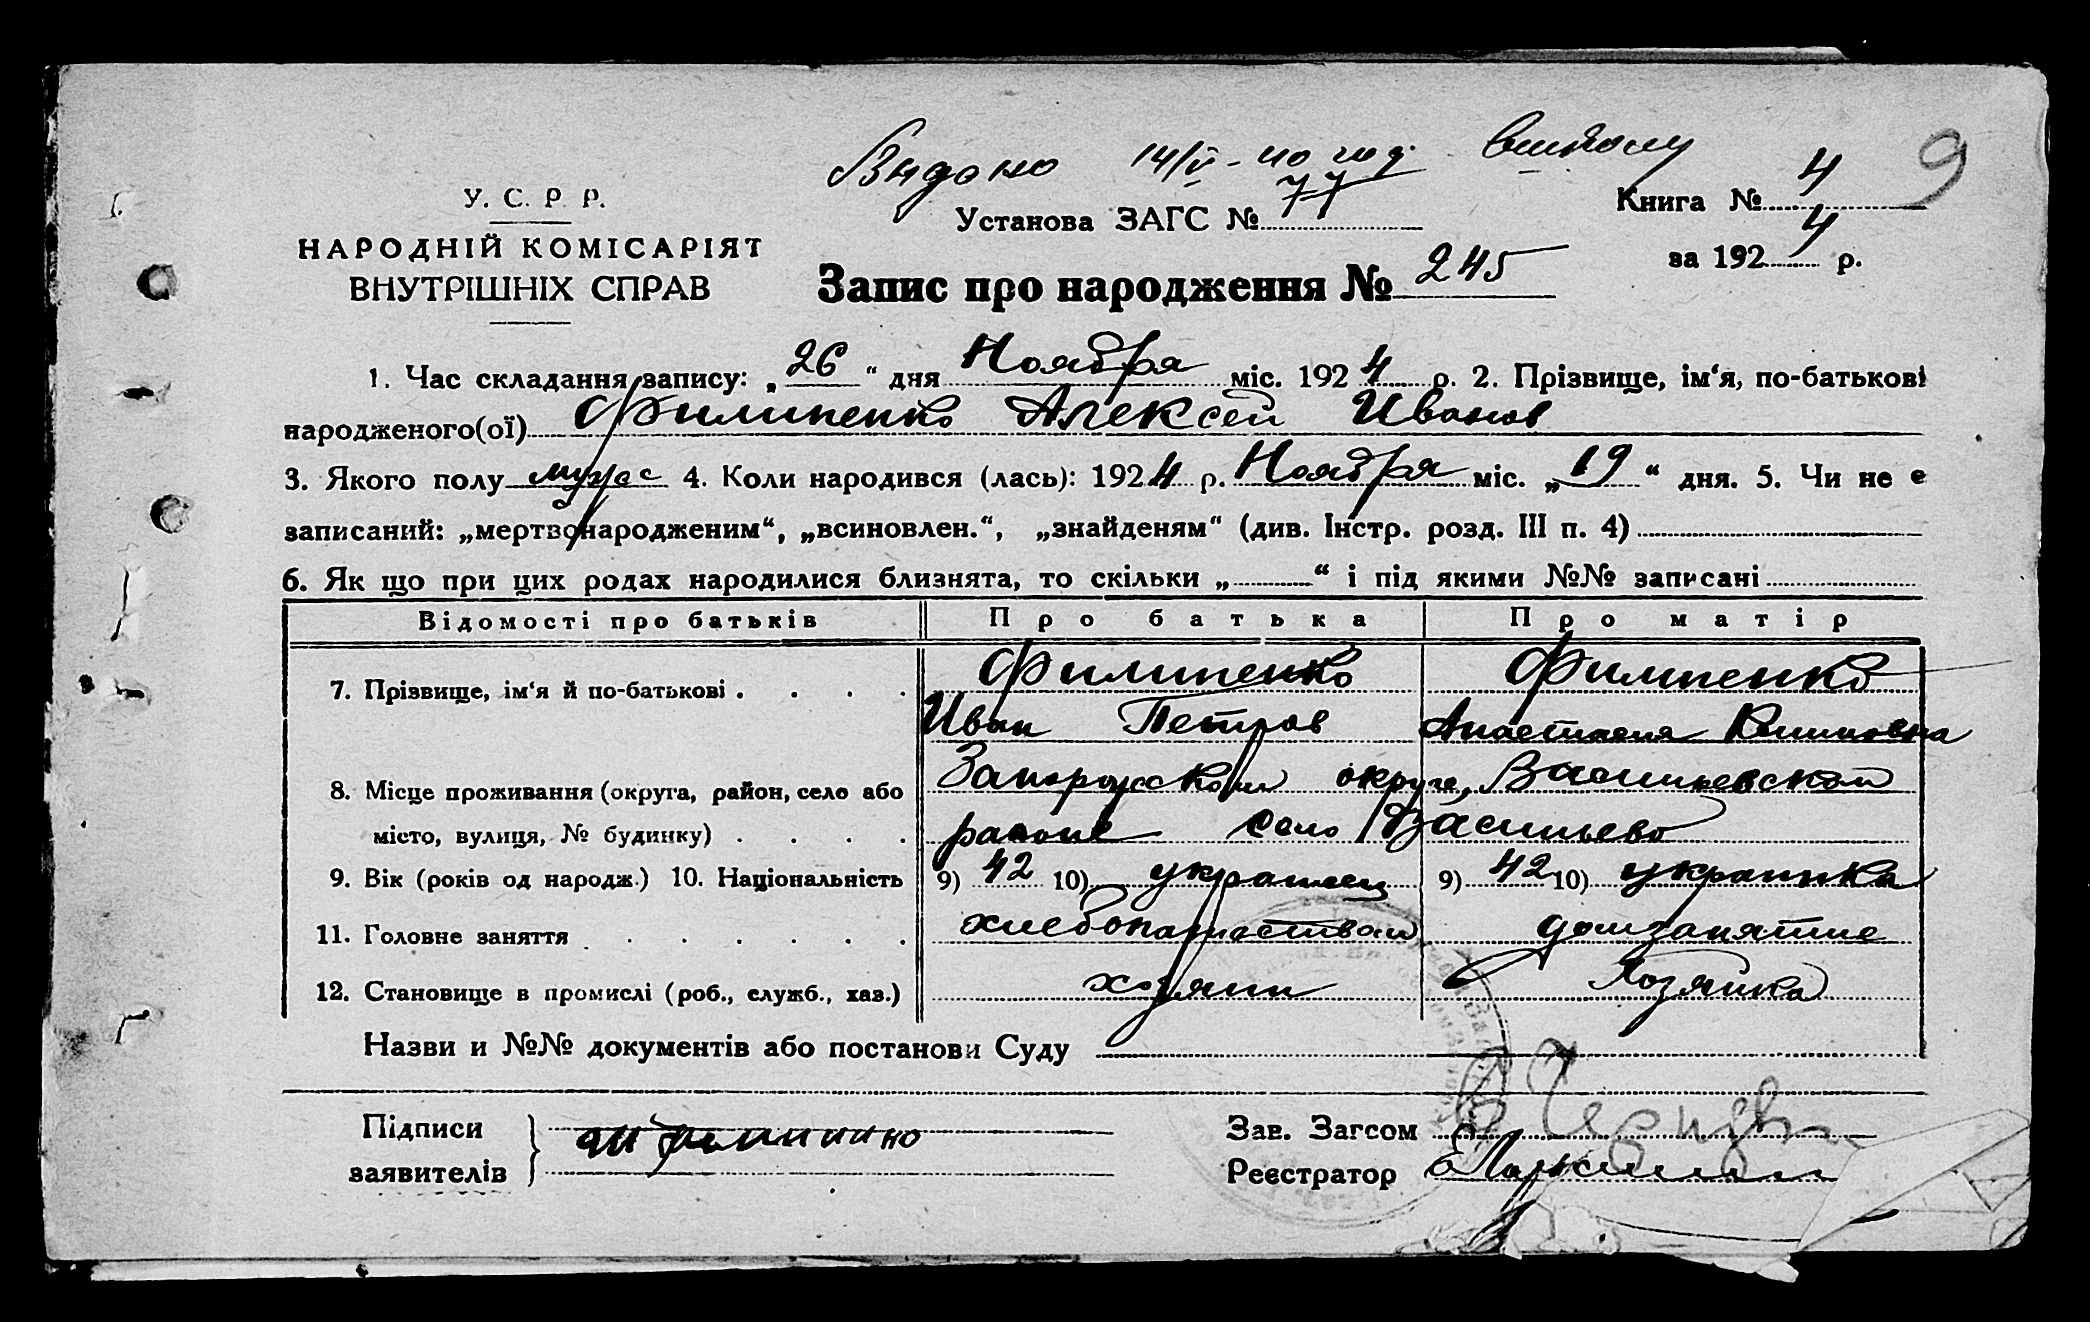 Видано 14/V - 40 год.
9
У. С. Р. Р.
Книга № 4
Установа ЗАГС № 77
НАРОДНІЙ КОМІСАРІЯТ
за 1924 р.
ВНУТРІШНІХ СПРАВ
Запис про народження № 245
1. Час складання запису: „26“ дня Ноября міс. 1924 р. 2. Прізвище, ім‘я, по-батькові
народженого(ої) Филипенко Алексей Иванов
3. Якого полу муж 4. Коли народився (лась): 1924 р. Ноября міс. „19“ дня. 5. Чи не є
записаний: „мертвонародженим“, „всиновлен.“, „знайденям“ (див. Інстр. розд. III п. 4)
6. Як що при цих родах народилися близнята, то скільки „ “ і під якими №№ записані
Відомості про батьків Про батька Про матір
7. Прізвище, ім‘я й по-батькові Филипенко Филипенко
Иван Петров Анастасия
8. Місце проживання (округа, район, село або Запорожской округе, Васильевском
місто, вулиця, № будинку) районе село Васильево
9. Вік (років од народж.) 10. Національність 9) 42 10) украинец 9) 42 10) украинка
11. Головне заняття хлебопашеством домзанятие
12. Становище в промислі (роб., служб., хаз.) хозяин Хозяйка
Назви и №№ документів або постанови Суду
Підписи
заявителів
Зав. Загсом
Реєстратор